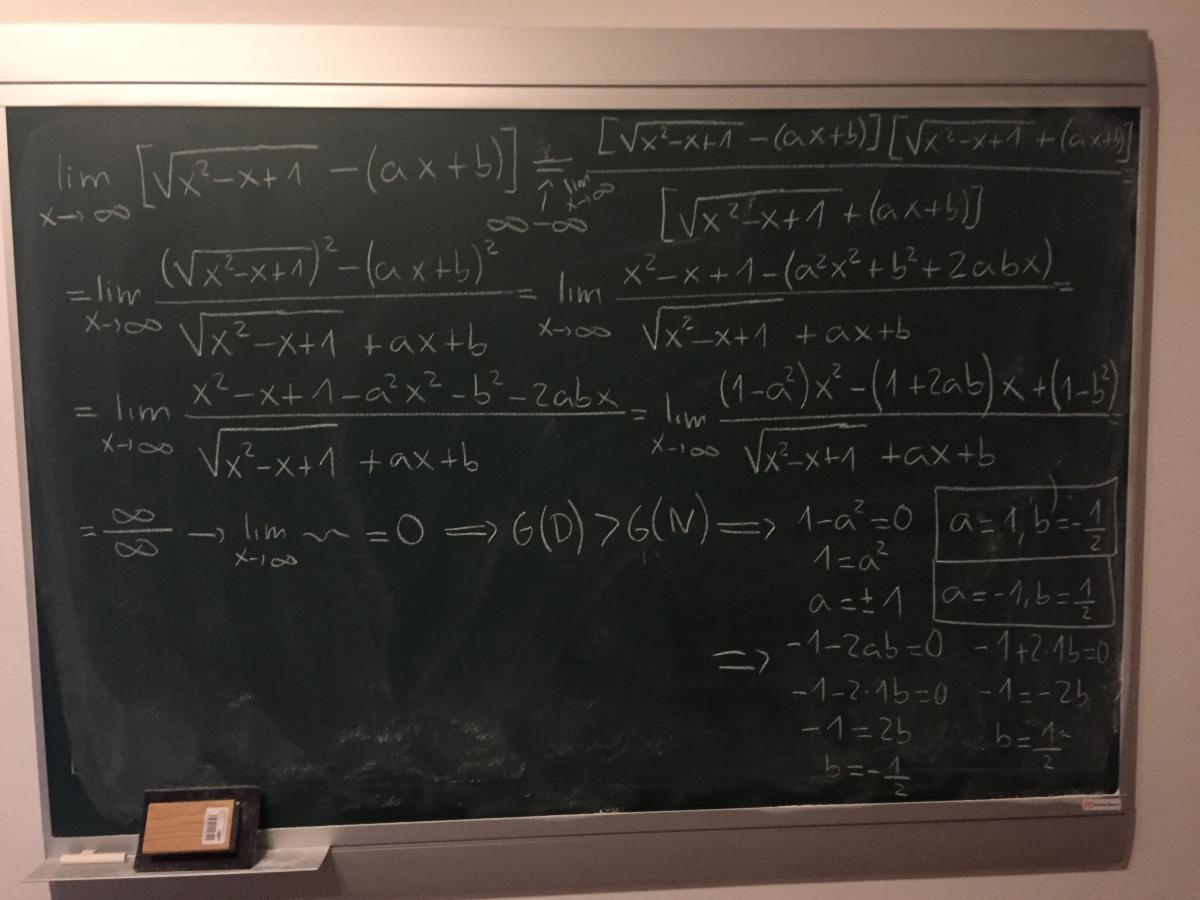 lim x→∞ [√(x²-x+1) - (ax+b)] = ↑ ∞-∞ lim x→∞ [√(x²-x+1) - (ax+b)][√(x²-x+1) + (ax+b)] / [√(x²-x+1) + (ax+b)] =
= lim x→∞ ((√(x²-x+1))² - (ax+b)²) / (√(x²-x+1) + ax+b) = lim x→∞ (x²-x+1-(a²x²+b²+2abx)) / (√(x²-x+1) + ax+b) =
= lim x→∞ (x²-x+1-a²x²-b²-2abx) / (√(x²-x+1) + ax+b) = lim x→∞ ((1-a²)x²-(1+2ab)x+(1-b²)) / (√(x²-x+1) + ax+b)
= ∞/∞ → lim x→∞ ~ = 0 ⇒ G(D) > G(N) ⇒ 1-a²=0
1=a²
a=±1
a=1, b=-1/2
a=-1, b=1/2
⇒ -1-2ab=0
-1-2·1b=0
-1=2b
b=-1/2
-1+2·1b=0
-1=-2b
b=1/2